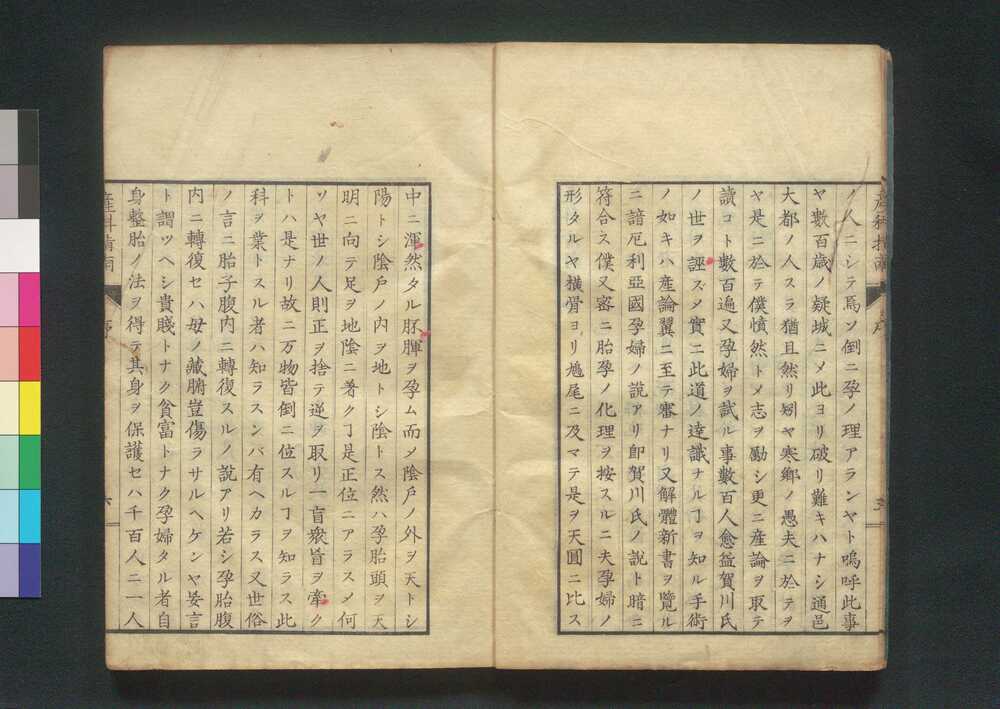 ノ人ニシテ焉ソ倒ニ孕ノ理アランヤト嗚呼此事
ヤ數百歳ノ疑城ニメ此ヨリ破リ難キハナシ通邑
大都ノ人スラ猶且然リ矧ヤ寒鄉ノ愚夫ニ於テヲ
ヤ是ニ於テ僕憤然トメ志ヲ勵シ更ニ產論ヲ取テ
讀コト數百遍又孕婦ヲ試ル事數百人愈益賀川氏
ノ世ヲ誣ズメ實ニ此道ノ達識ナルヿヲ知ル手術
ノ如キハ產論翼ニ至テ審ナリ又解體新書ヲ覽ル
ニ諳厄利亞國孕婦ノ說アリ卽賀川氏ノ說ト暗ニ
符合ス僕又審ニ胎孕ノ化理ヲ按スルニ夫孕婦ノ
形タルヤ橫骨ヨリ尾ニ及マテ是ヲ天圓ニ比ス
中ニ渾然タル胚腪ヲ孕ム而メ陰戶ノ外ヲ天トシ
陽トシ陰戶ノ內ヲ地トシ陰トス然ハ孕胎頭ヲ天
明ニ向テ足ヲ地陰ニ著クヿ是正位ニアラスメ何
ソヤ世ノ人則正ヲ捨テ逆ヲ取リ一盲衆盲ヲ牽ク
トハ是ナリ故ニ万物皆倒ニ位スルヿヲ知ラス此
科ヲ業トスル者ハ知ラスンバ有ヘカラス又世俗
ノ言ニ胎子腹內ニ轉復スルノ說アリ若シ孕胎腹
內ニ轉復セハ母ノ藏腑豈傷ラサルヘケンヤ妄言
ト謂ツヘシ貴賤トナク貧富トナク孕婦タル者自
身整胎ノ法ヲ得テ其身ヲ保護セハ千百人ニ一人
序
六